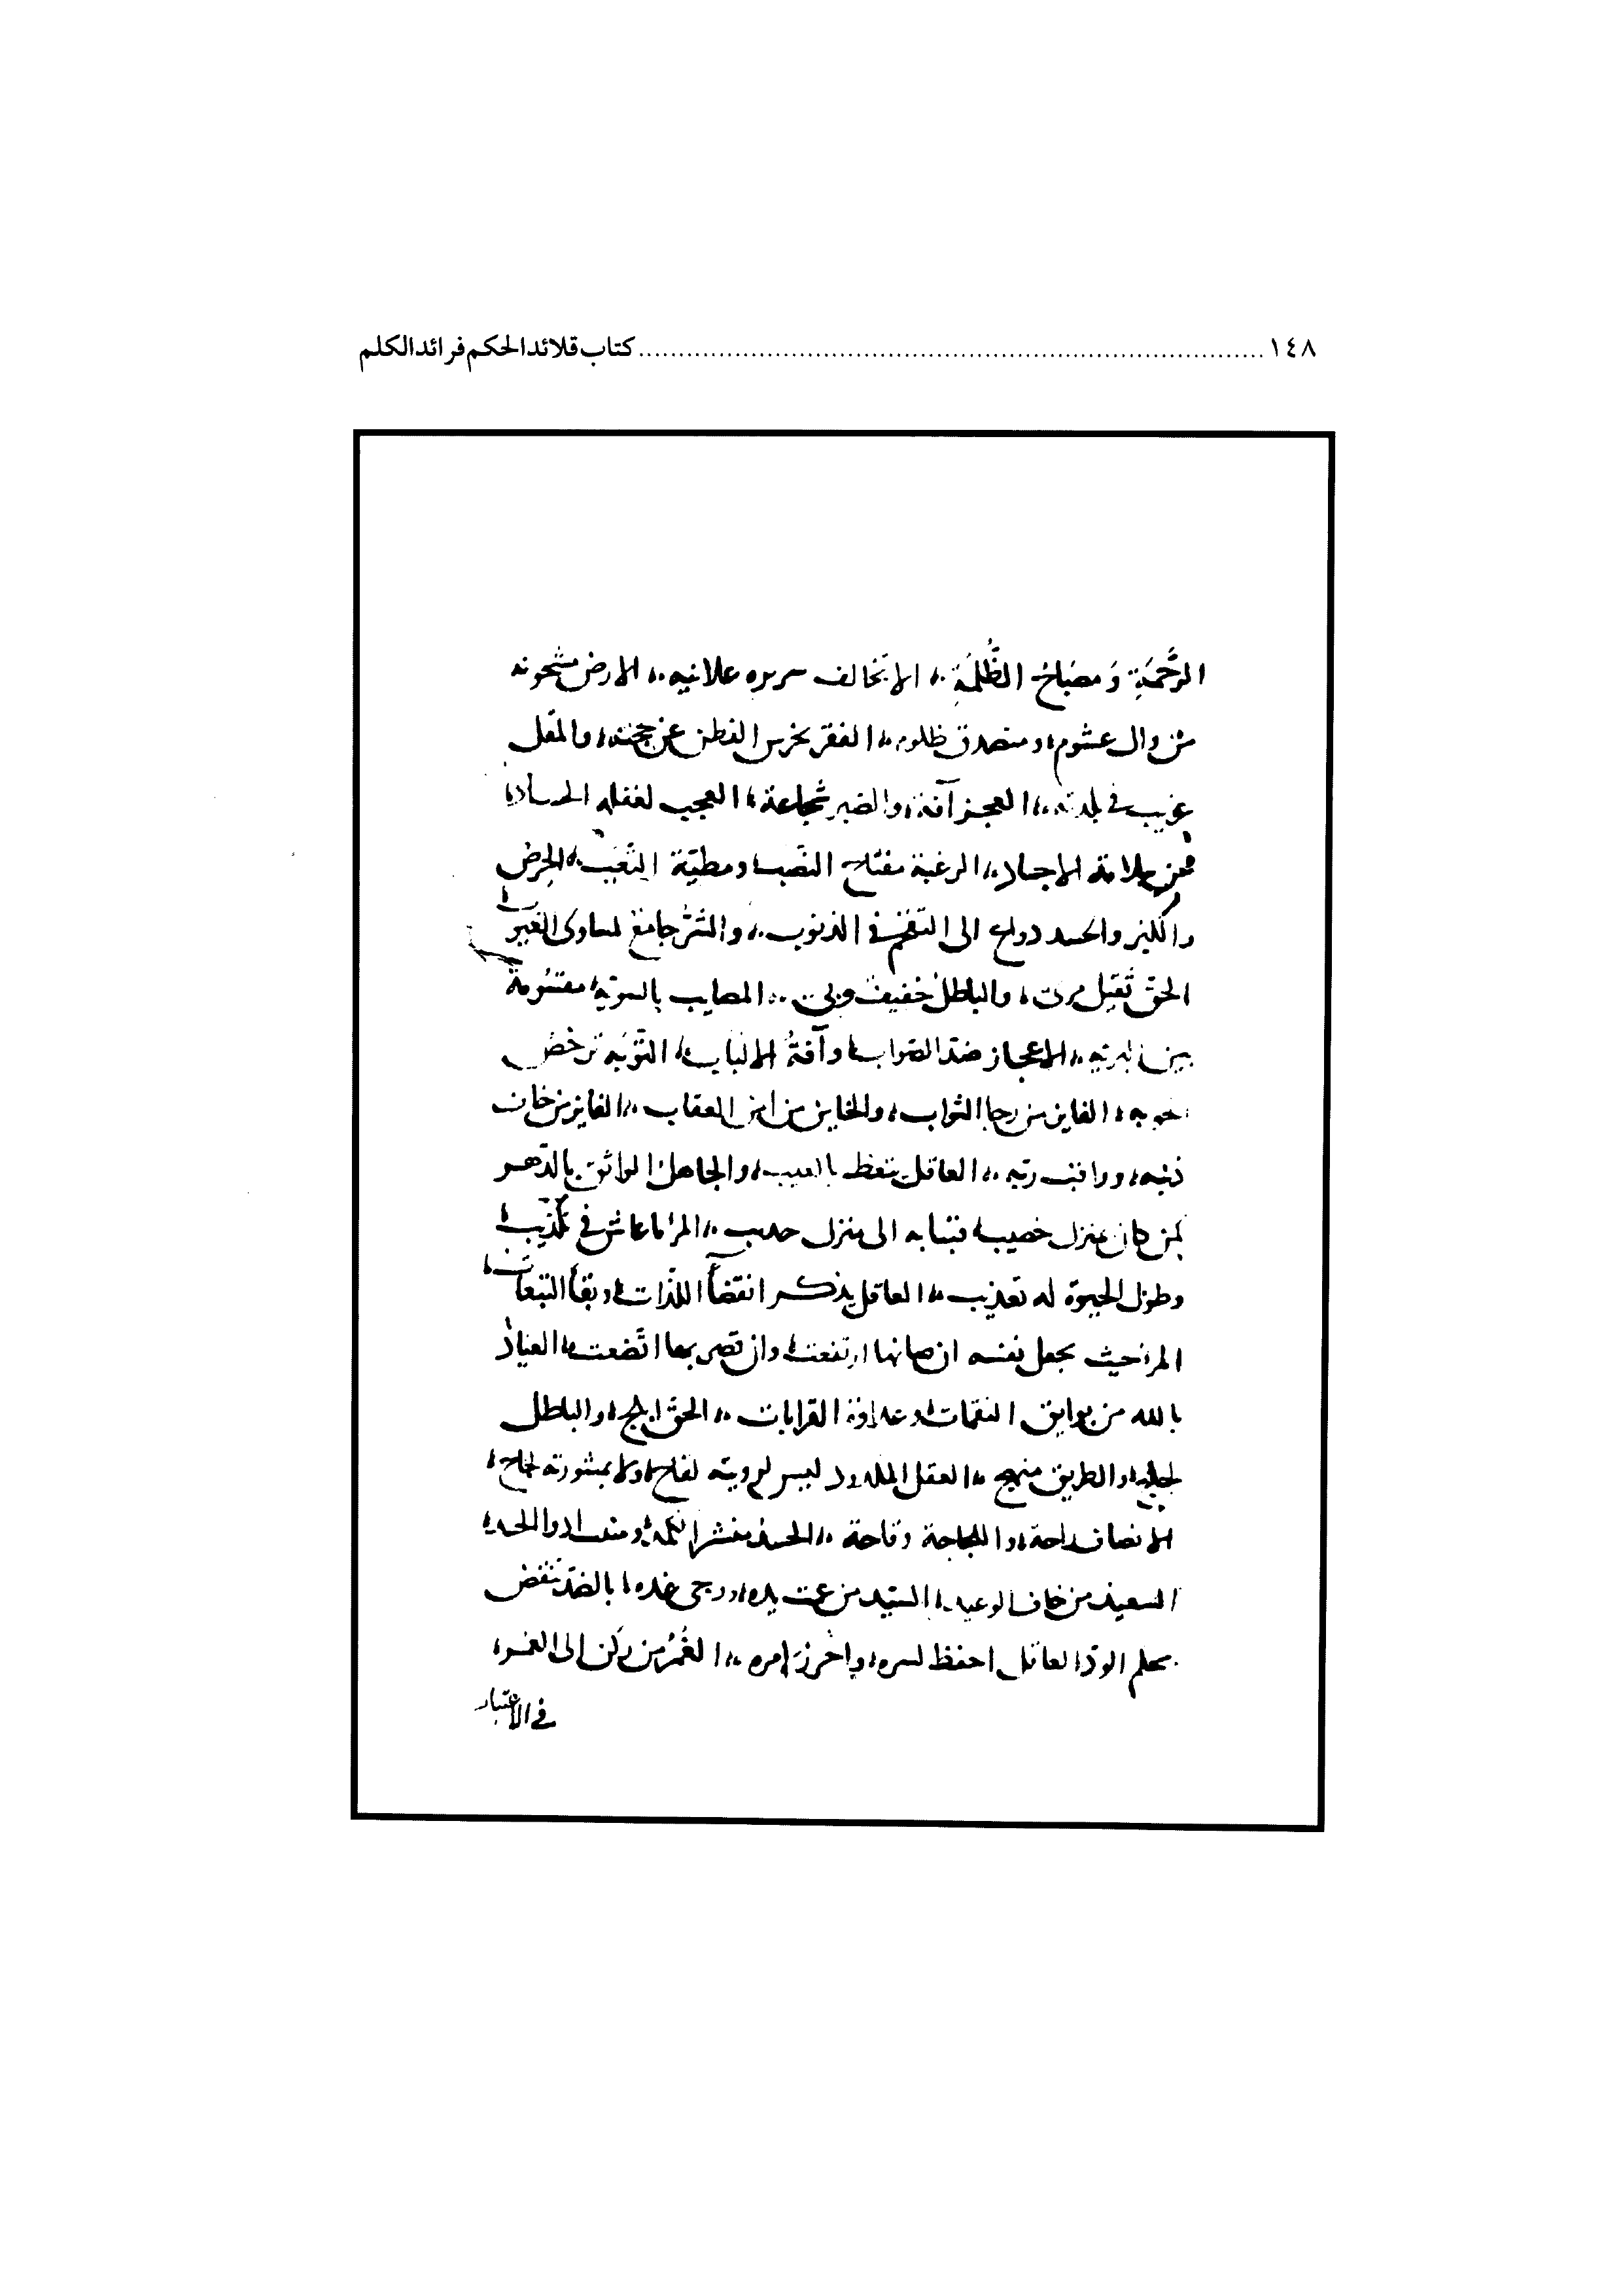 ١٤٨ ........ كتاب قلائد الحكم فرائد الكلم
الرَّحْمَةِ وَمصبَاحُ الظُّلْمَةِ، الا تخالف سريره علانيه، الارض مشحونه
من وال عشوم، ومتصدق ظلوم، الفقر يخرس الفطن عن حجته، والمقل
غريب في بلدته، العجز آفة، والصبر شجاعة، العجب لغفله الحساد،
عن سلامة الاجساد، الرغبة مفتاح النصب، ومطيّة التعب، الحرص
والكبر والحسد دواع الى التقحم في الذنوب، والشرّ جامع لمساوى العيوب
الحق ثقيل مرى، والباطل خفيف وبى، المصايب بالسويّة، مقسُومة
بين البريه، الاعجاب ضدّ الصواب، وآفةُ الالباب، التّوبَه ترحض
الحوبه، الفاين من رجا الثواب، والخاين من امن العقاب، الفايز من خاف
ذنبه، وراقب ربّه، العاقل يتعظ بالعيب، والجاهل الواثق بالدّهر
كمن كان بمنزل خصيب، فنبا به الى منزل جديب، المرء ما عاش في تكذيب،
وطول الحيوة له تعذيب، العاقل يذكر انقضآ اللذّات، وبقآ التبعات،
المرء حيث يجعل نفسه ان صانها ارتفعت، وان قصر بها اتّضعت، العياذ
بالله من بوايق النقمات، وعداوة القرابات، الحق ابلج، والباطل
لجلج، والطريق منهج، ليس لرويته لقاح، ولا بمشورته نجاح،
الانصاف راحة، واللجاجة وقاحة،
السعيد من خاف الوعيد، السّيد من عمت يده، ورجى غده، بالضدّ
العاقل احفظ لسره، واحْرزَ لامره، الغُمْرُ من ركَن الى العمر،
في الاعتبار